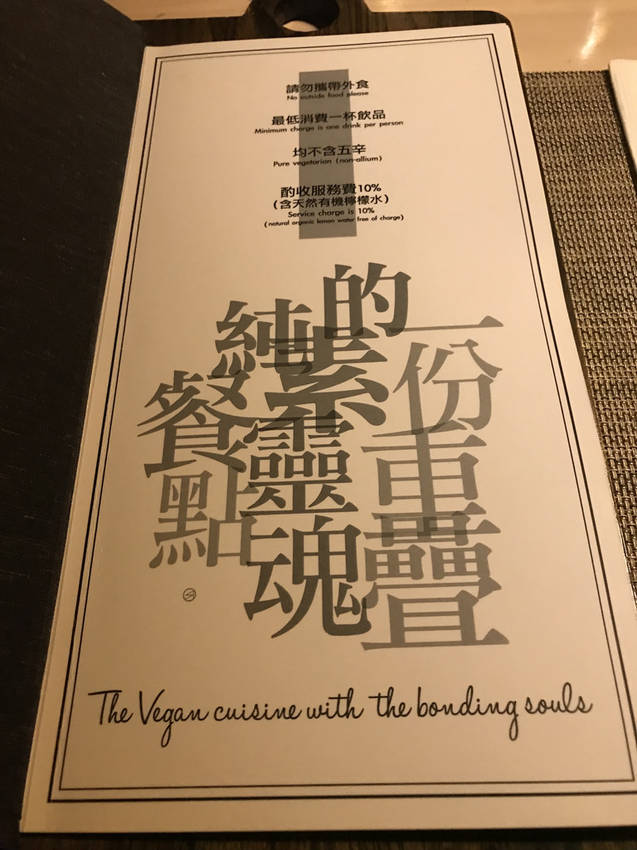 請勿攜帶外食
No outside food please
最低消費一杯飲品
Minimum charge is one drink per person
均不含五辛
Pure vegetarian (non-allium)
酌收服務費10%
(含天然有機檸檬水)
Service charge is 10%
(natural organic lemon water free of charge)
一份重疊
靈魂
的
純素
餐點
The Vegan cuisine with the bonding souls